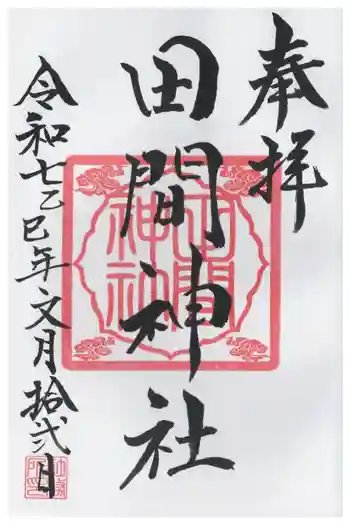 奉拝
田間神社
令和七乙巳年文月拾弐日
田間神社